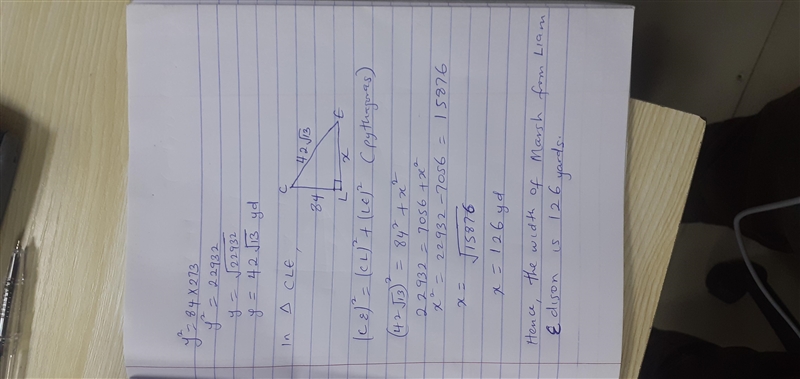 y² = 84 × 273
y² = 22932
y = √22932
y = 42√13 yd
In △ CLE,
C
84
42√13
L
x
E
(CE)² = (CL)² + (LE)² (pythagoras)
(42√13)² = 84² + x²
22932 = 7056 + x²
x² = 22932 - 7056 = 15876
x = √15876
x = 126 yd
Hence, the width of Marsh from Liam
Edison is 126 yards.